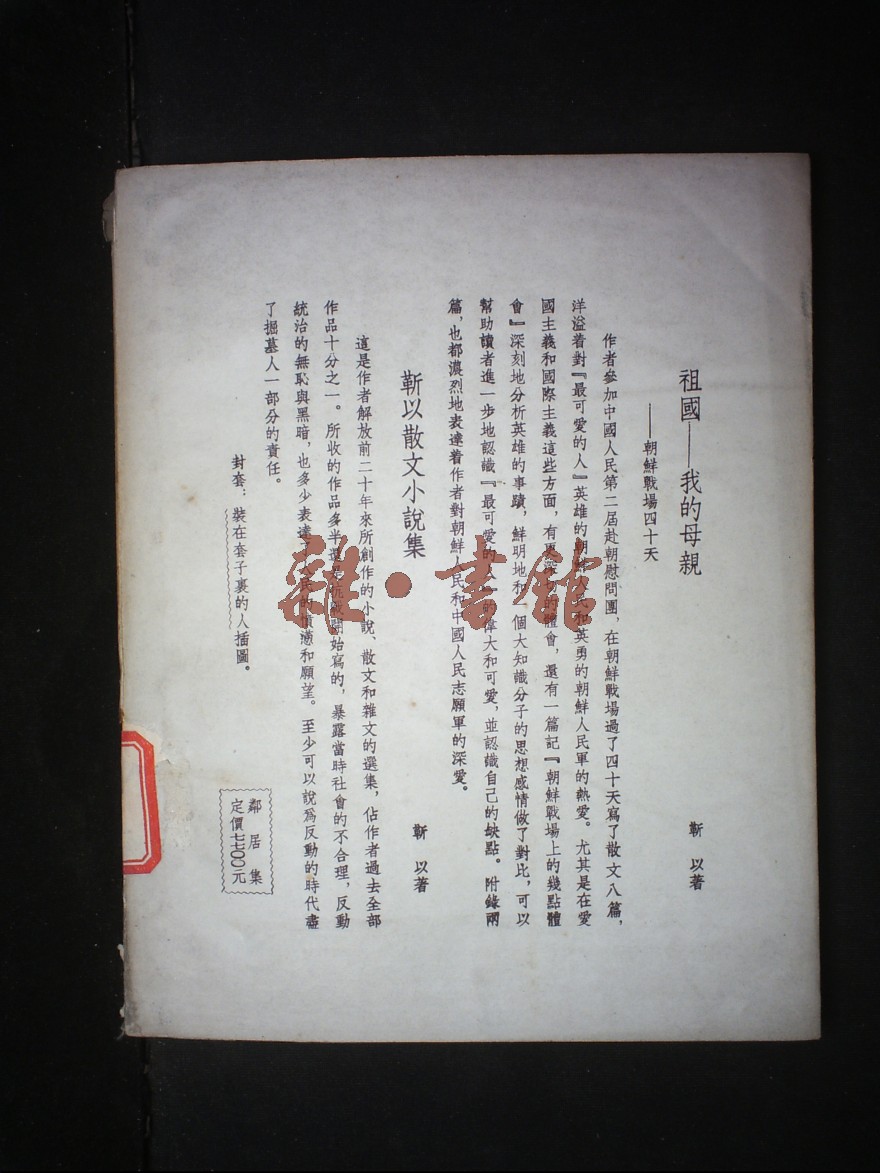 祖國——我的母親
——朝鮮戰場四十天
靳以著
作者參加中國人民第二屆赴朝慰問團，在朝鮮戰場過了四十天寫了散文八篇，
洋溢着對『最可愛的人』英雄的朝鮮人民和英勇的朝鮮人民軍的熱愛。尤其是在愛
國主義和國際主義這些方面，有更深的體會，還有一篇記『朝鮮戰場上的幾點體
會』深刻地分析英雄的事蹟，鮮明地和個大知識分子的思想感情做了對比，可以
幫助讀者進一步地認識『最可愛的人』的偉大和可愛，並認識自己的缺點。附錄兩
篇，也都濃烈地表達着作者對朝鮮人民和中國人民志願軍的深愛。
靳以散文小說集
靳以著
這是作者解放前二十年來所創作的小說、散文和雜文的選集，佔作者過去全部
作品十分之一。所收的作品多半還是抗戰開始寫的，暴露當時社會的不合理，反動
統治的無恥與黑暗，也多少表達了人民的憤懣和願望。至少可以說爲反動的時代盡
了掘墓人一部分的責任。
封套：裝在套子裏的人插圖。
鄰居集
定價七七00元
雜·書館